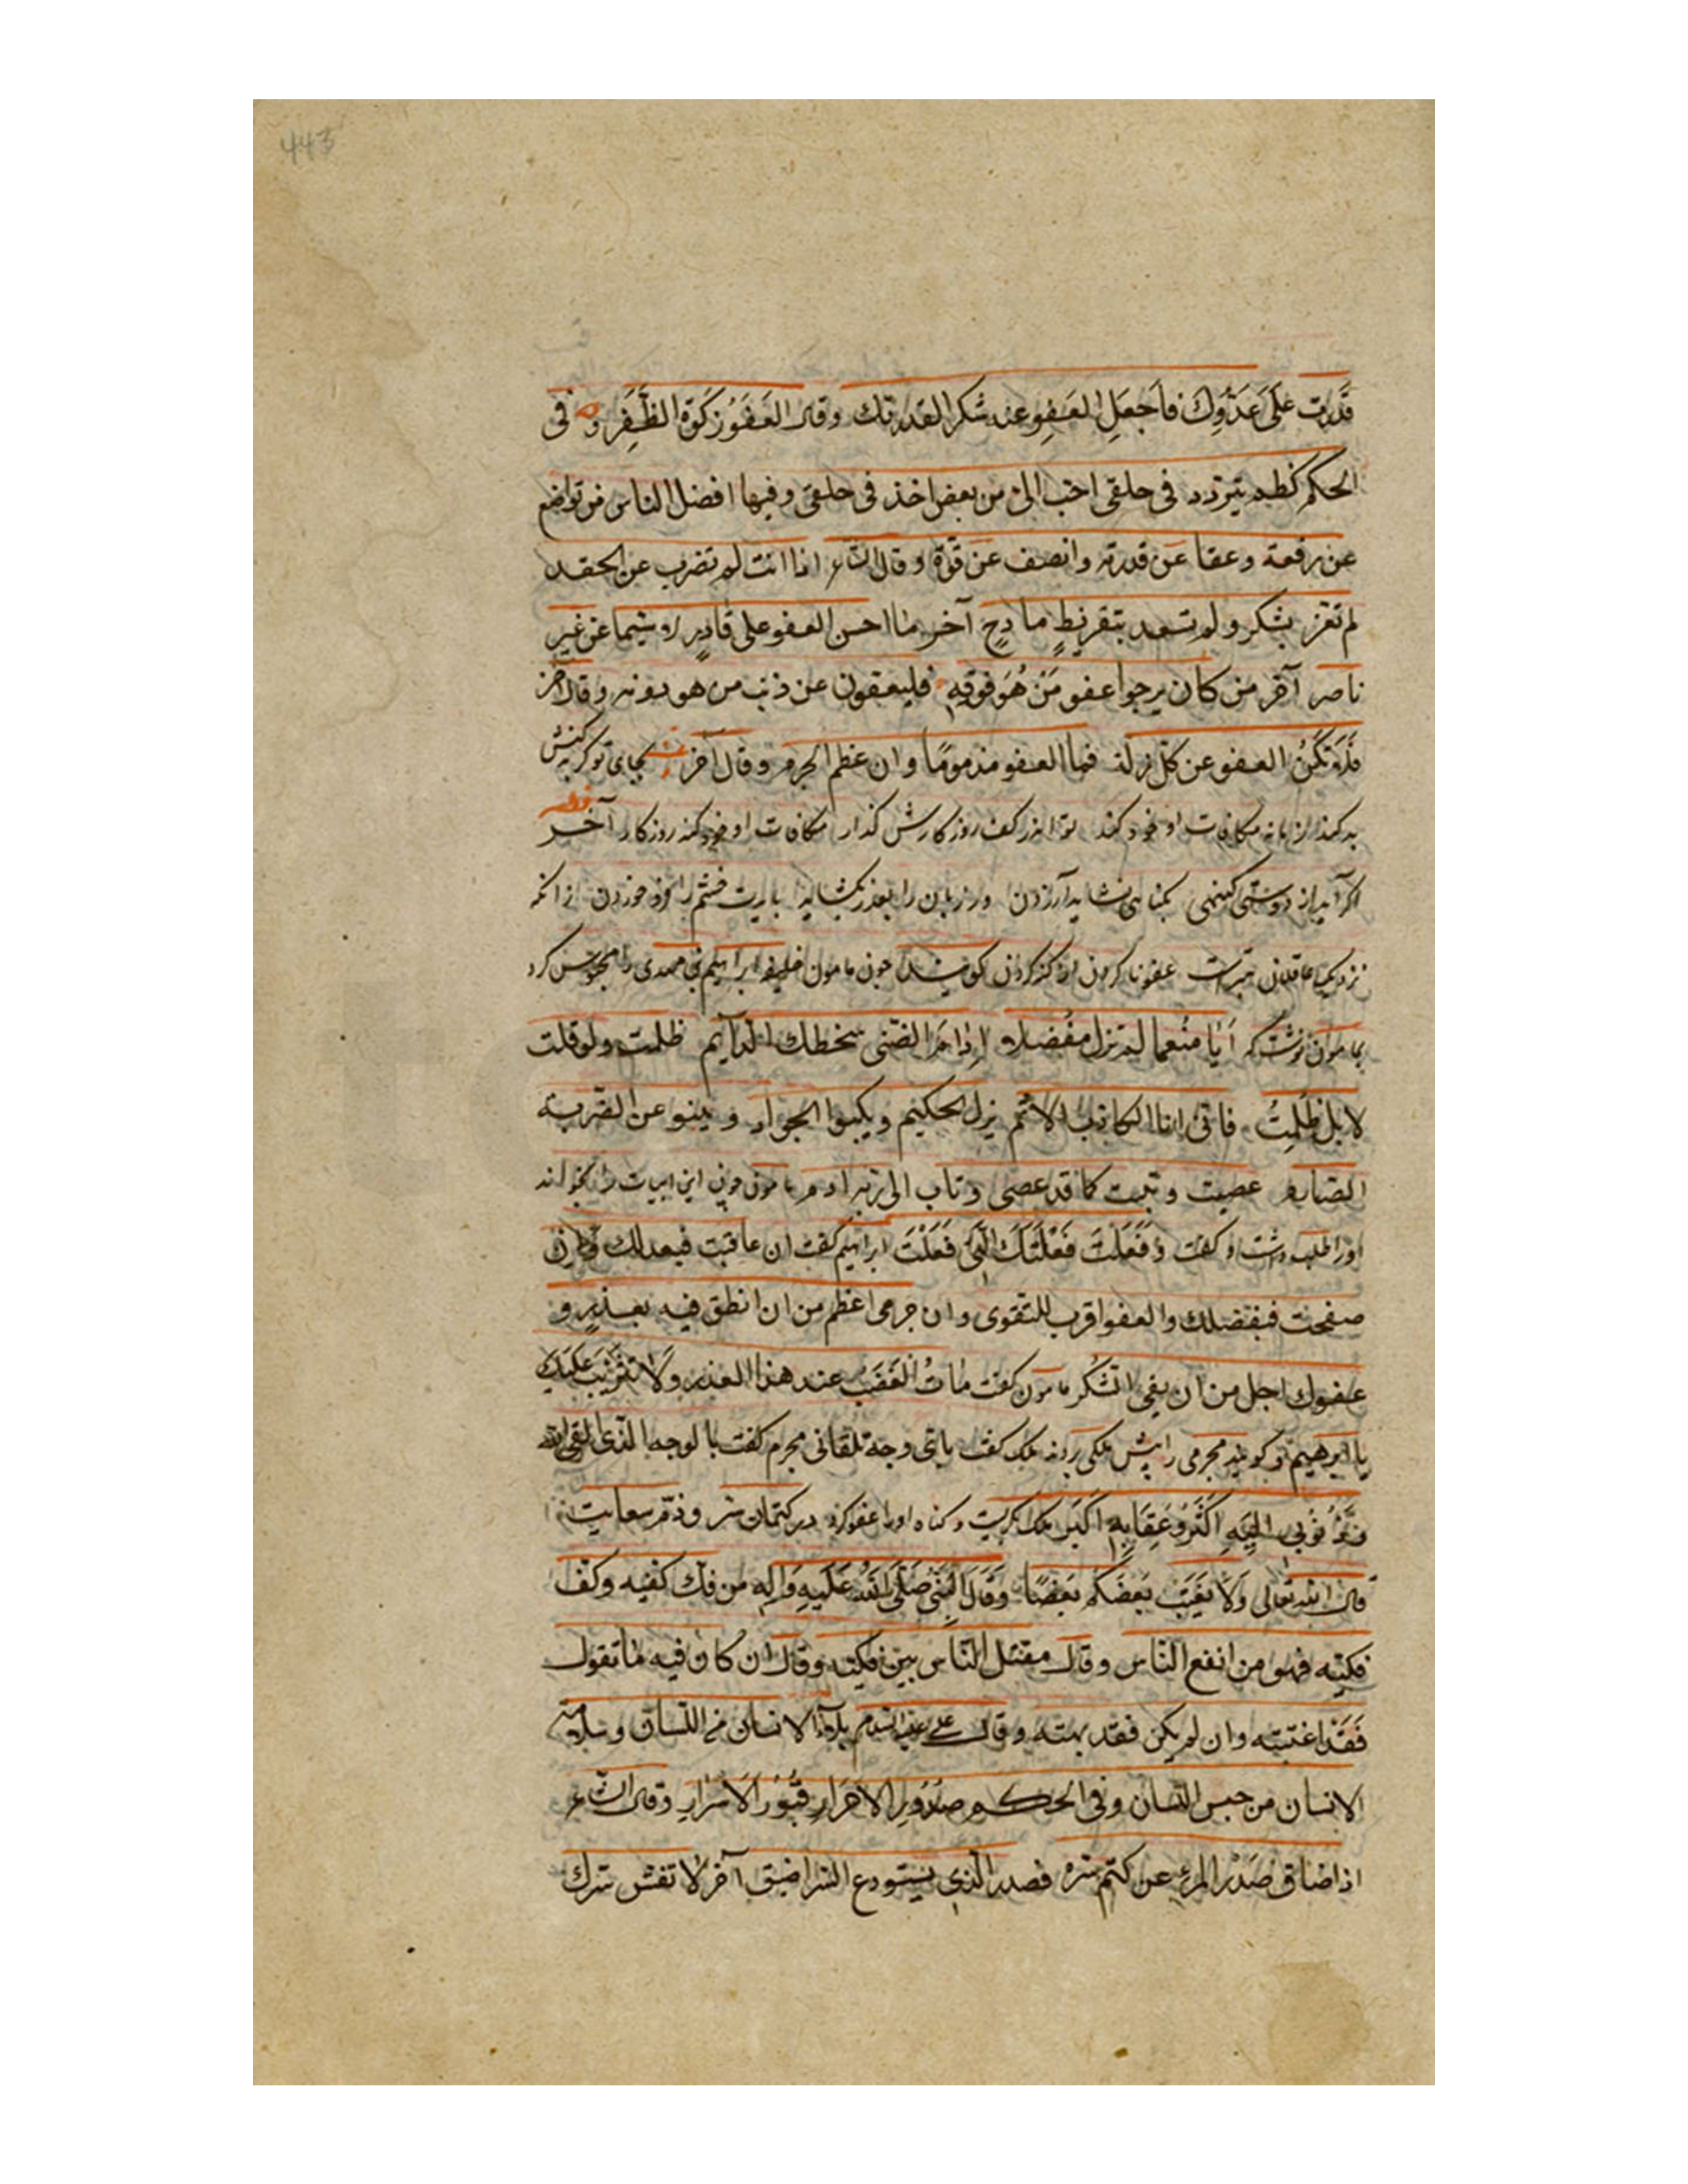 443
قَدَرت عَلَى عَدُوِّكَ فَاَجعَلِ العَفِو عنه شكر القدرتك وقال العَفَوُ زَكَوة الظَفَرِ و فی
الحكم كظمه يتردد فی حلقی احب الیّ من بعض اخذ فی حلقی وفيها افضل الناس من تواضع
عن رفعة وعفا عن قدرة وانصف عن قوّة وقال الشاعر اذا انت لم تضرب عن الحقد
لم تفز بشكر ولم تسعد بتقريظ مادحٍ آخر ما احسن العفو علی قادرٍ لا سيما عن غير
ناصر آخر من كان يرجوا عفو مَنْ هُوَ فوقه فليعفون عن ذنب من هو دونه وقال آخر
العفو عن كلّ زلة فما العفو مذمومًا وان عظم الجرم وقال آخر بجای تو گر کسش
بد کند زمانه مکافات او خود کند تو اندر کف روزکارش کذار مکافات او خود کند روزکار آخر
اکر آید از دوستی کنهی بکناهی نشاید آزردن ور زبان را بعذر بکشاید بایدت خشم را فرو خوردن زانکه
نزدیک عاقلان بتر است عفو ناکردن از کنه کردن کویند چون مامون خلیفه ابراهیم بن مهدی را محبوس کرد
بمامون نوشت که اَیا مُنعما لم تزل مفُضلا بسخطك الدآيم ظلمت ولو قلت
لا بل ظُلِمتُ فانی انا الكاذب الآثم يزل الحكيم ويكبوا الجواد و ينبو عن الضربة
الصارم عصيت وتبت كما قد عصی وتاب الی ربه ادم مامون چون این ابیات را بخواند
او را طلب داشت و کفت وَفَعَلْتَ فَعْلَتَكَ الَّتِی فَعَلْتَ ابراهیم کفت ان عاقبت فبعدلك وان
صفحت فبفضلك والعفو اقرب للتقوی وان جرمی اعظم من ان انطق فيه بعذرٍ و
عفوك اجل من ان يفی الشكر مامون کفت مٰاتُ الغَضَب عند هذا العذر ولا تثريب عليك
يا ابرهيم و کویند مجرمی را پیش ملکی بردند ملک کفت بای وجه تلقانی مجرم کفت بالوجه الذی القی الله
وذُنُوبی اليهِ اَكثَرُ وعِقَابِهِ اكبَر ملک بکریست و کناه او را عفو کرد در کتمان سر وذم سعايت
قال الله تعالی ولا يغتب بعضكم بعضًا وقال النبیّ صلّی الله عليه وآله من فك كفيه وكف
فكيّه فهو من انفع النّاس وقال مقتل النّاس بين فكيه وقال ان كان فيه ما تقول
فَقَد اغتبته وان لم يكن فقد بهته وقال علی عليه السلام بلاءُ الانسان من اللسان وسلامة
الانسان من حبس اللسان وفی الحكم صدُورِ الاحرَار قبُورُ الاَسرارِ وقال الشاعر
اذا ضاق صَدْر المرءِ عن كتم سرّه فصدر الّذی يستودع السّر اضيق آخر لا تفش سرّك